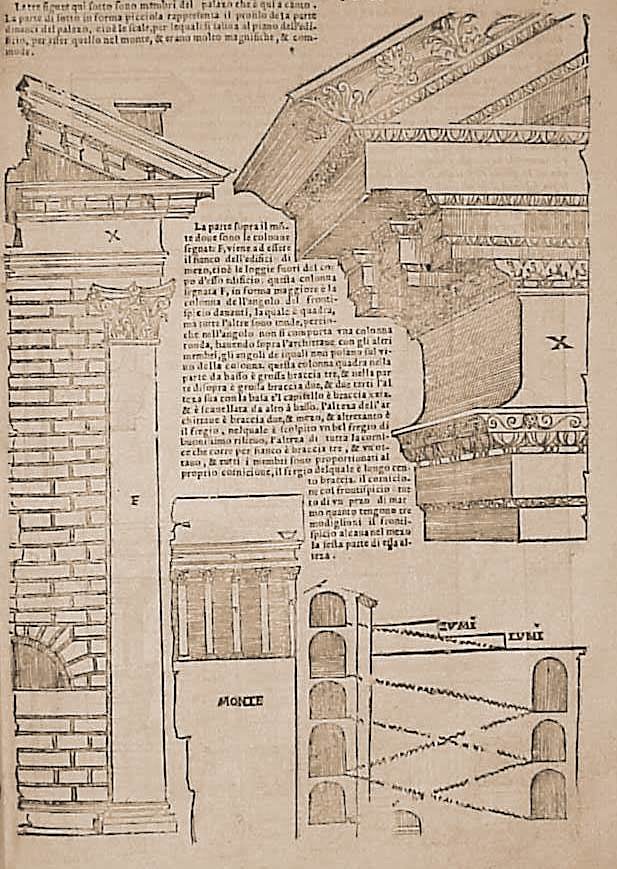 Le tre figure qui sotto sono membri del palazo che è qui a canto.
La parte di sotto in forma picciola rappresenta il profilo de la parte
dinanci del palazo, cioè le scale, per lequali si saliua al piano dell'edi-
ficio, per esser quello nel monte, & erano molto magnifiche, & com-
mode.
X
La parte sopra il mõ-
te doue sono le colonne
segnate F, viene ad essere
il fianco dell'edifici di
mezo, cioè le loggie fuori del cor
po d'esso edificio: questa colonna
signata F, in forma maggiore è la
colonna dell'angolo del fronti-
spicio dauanti, laquale è quadra,
ma tutte l'altre sono tonde, percio-
che nell'angolo non si comporta vna colonna
ronda, hauendo sopra l'architraue con gli altri
membri, gli angoli de iquali non posano sul vi-
uo della colonna. questa colonna quadra nella
parte da basso è grossa braccia tre, & nella par
te disopra è grossa braccia due, & due terzi l'al
teza sua con la basa e'l capitello è braccia
& è scanellata da alto à basso. l'alteza dell'ar
chitraue è braccia due, & mezo, & altretanto è
il fregio, nelquale è scolpito vn bel fregio di
bonissimo rilieuo, l'alteza di tutta la corni-
ce che corre per fianco è braccia tre, & vn ot-
tauo, & tutti i membri sono proportionati al
proprio cornicione, il fregio delquale è lungo cen
to braccia. il cornicio-
ne col frontispicio tut
to di vn pezo di mar
mo quanto tengono tre
modiglioni il fronti-
spicio alcaua nel mezo
la sesta parte di essa al-
teza.
X
F
MONTE
LVMĪ
LVMĪ